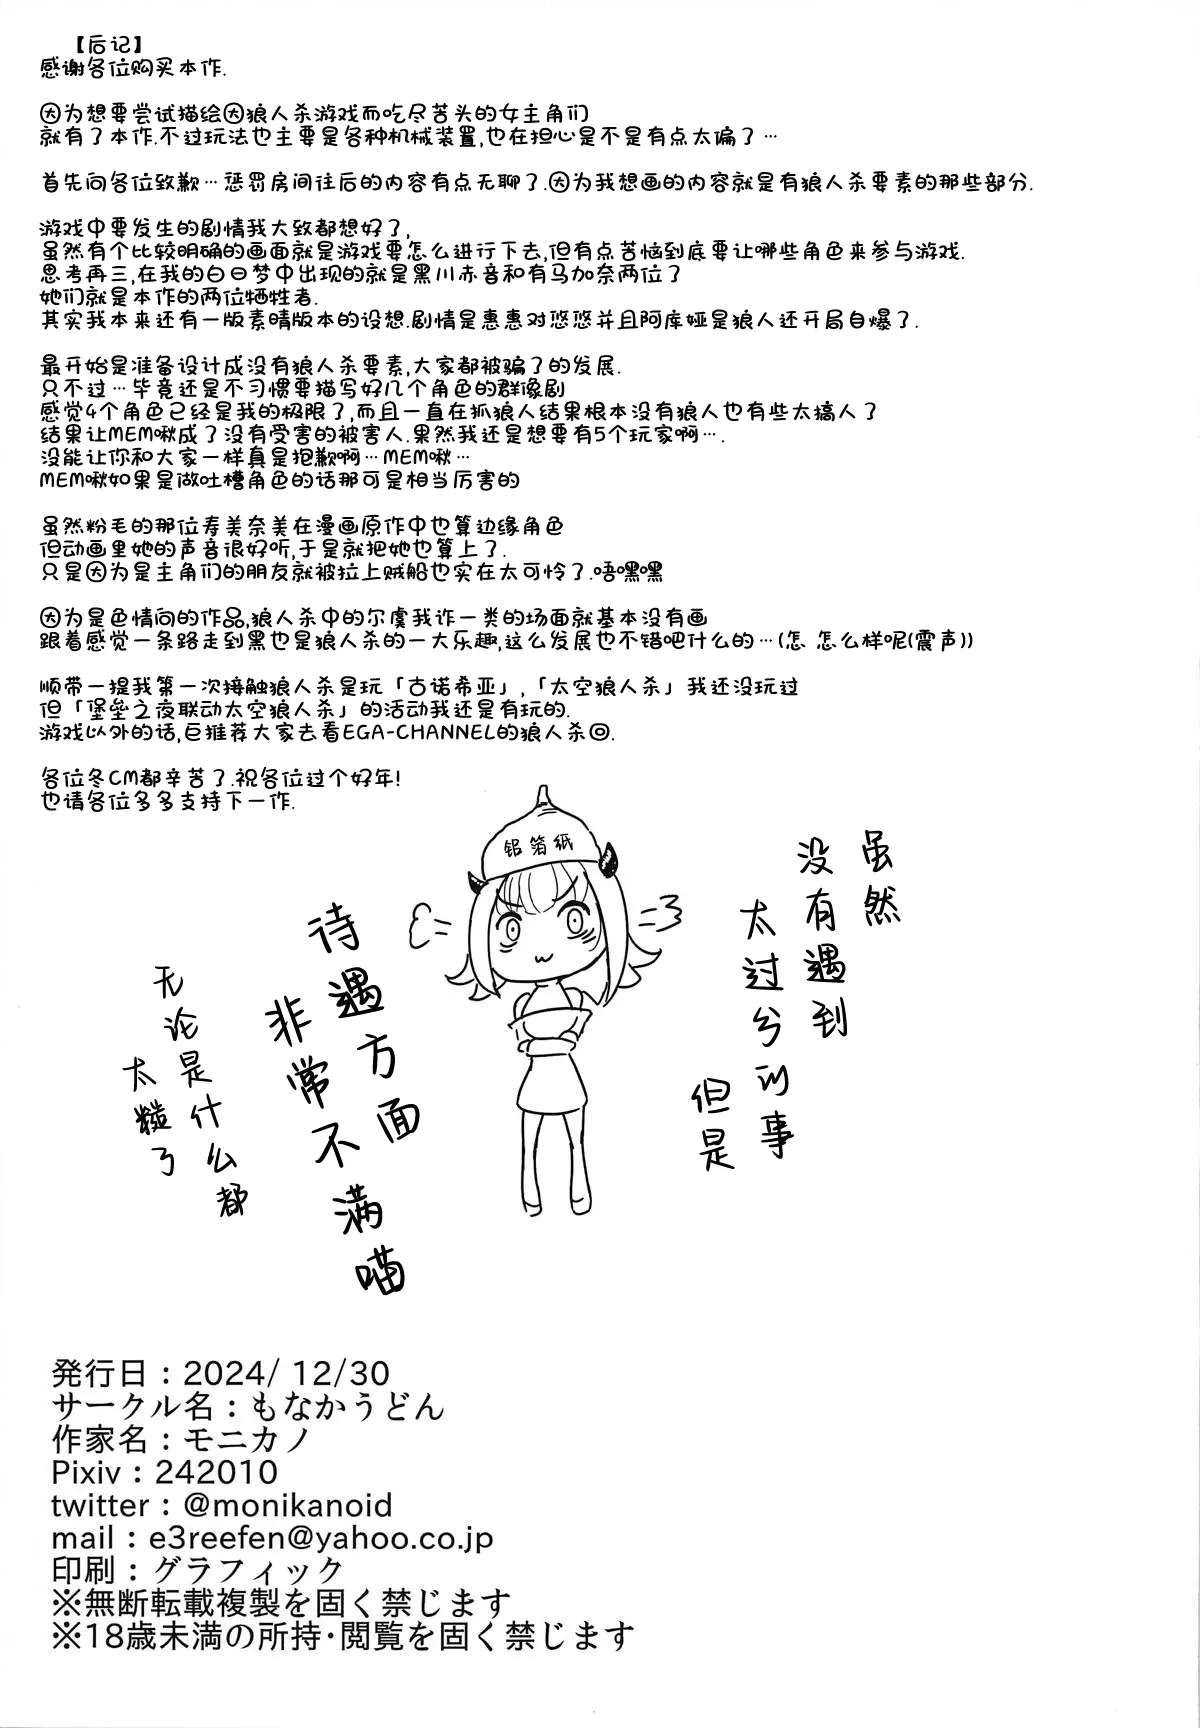 【后记】
感谢各位购买本作.
因为想要尝试描绘因狼人杀游戏而吃尽苦头的女主角们
就有了本作.不过玩法也主要是各种机械装置,也在担心是不是有点太偏了…
首先向各位致歉…惩罚房间往后的内容有点无聊了.因为我想画的内容就是有狼人杀要素的那些部分.
游戏中要发生的剧情我大致都想好了,
虽然有个比较明确的画面就是游戏要怎么进行下去,但有点苦恼到底要让哪些角色来参与游戏.
思考再三,在我的白日梦中出现的就是黑川赤音和有马加奈两位了
她们就是本作的两位牺牲者.
其实我本来还有一版素晴版本的设想.剧情是惠惠对悠悠并且阿库娅是狼人还开局自爆了.
最开始是准备设计成没有狼人杀要素,大家都被骗了的发展.
只不过…毕竟还是不习惯要描写好几个角色的群像剧
感觉4个角色已经是我的极限了,而且一直在抓狼人结果根本没有狼人也有些太搞人了
结果让MEM啾成了没有受害的被害人.果然我还是想要有5个玩家啊….
没能让你和大家一样真是抱歉啊…MEM啾…
MEM啾如果是做吐槽角色的话那可是相当厉害的
虽然粉毛的那位寿美奈美在漫画原作中也算边缘角色
但动画里她的声音很好听,于是就把她也算上了.
只是因为是主角们的朋友就被拉上贼船也实在太可怜了.唔嘿嘿
因为是色情向的作品,狼人杀中的尔虞我诈一类的场面就基本没有画
跟着感觉一条路走到黑也是狼人杀的一大乐趣,这么发展也不错吧什么的…(怎 怎么样呢(震声))
顺带一提我第一次接触狼人杀是玩「古诺希亚」,「太空狼人杀」我还没玩过
但「堡垒之夜联动太空狼人杀」的活动我还是有玩的.
游戏以外的话,巨推荐大家去看EGA-CHANNEL的狼人杀回.
各位冬CM都辛苦了.祝各位过个好年!
也请各位多多支持下一作.
铝箔纸
虽然
没有遇到
太过分的事
但是
待遇方面
非常不满喵
无论是什么都
太糙了
発行日：2024/ 12/30
サークル名：もなかうどん
作家名：モニカノ
Pixiv：242010
twitter：@monikanoid
mail：e3reefen@yahoo.co.jp
印刷：グラフィック
※無断転載複製を固く禁じます
※18歳未満の所持･閲覧を固く禁じます